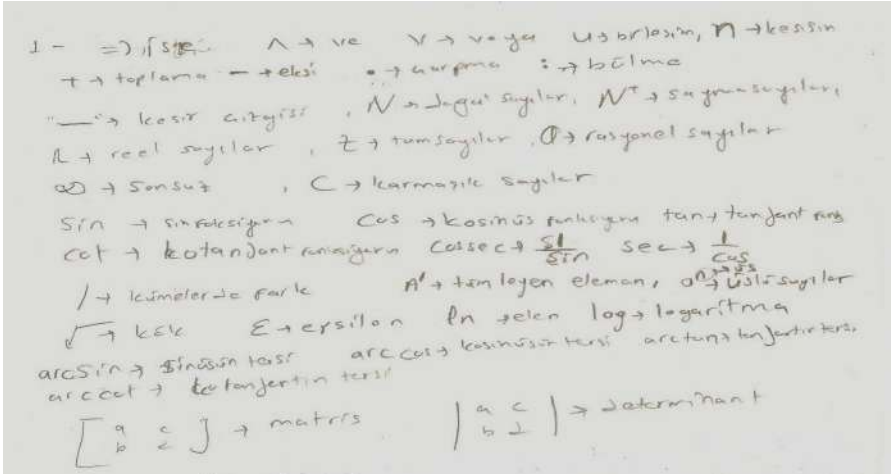 1 - => , ise. ∧ → ve ∨ → veya ∪ → birlesim, ∩ → kesisin
+ → toplama - → eksi • → carpma : → bölme
"—" → kesir cizgisi , N → dogal sayılar, N⁺ → sayma sayıları,
R → reel sayılar , Z → tamsayılar , Q → rasyonel sayılar
∞ → sonsuz , C → karmasık sayılar
Sin → sin foksiyonu Cos → kosinüs fonksiyonu tan → tanjant fonk
cot → kotanjant fonksiyonu Cossec → 1/Sin sec → 1/Cos
/ → kümelerde fark A' → tümleyen eleman, aⁿ → üslü sayılar
√ → kök Ɛ → epsilon ln → elen log → logaritma
arcSin → Sinüsün tersi arccos → kosinüsün tersi arctan → tanjantın tersi,
arccot → kotanjentin tersi
[ a c ] → matris | a c | → determinant
b b d